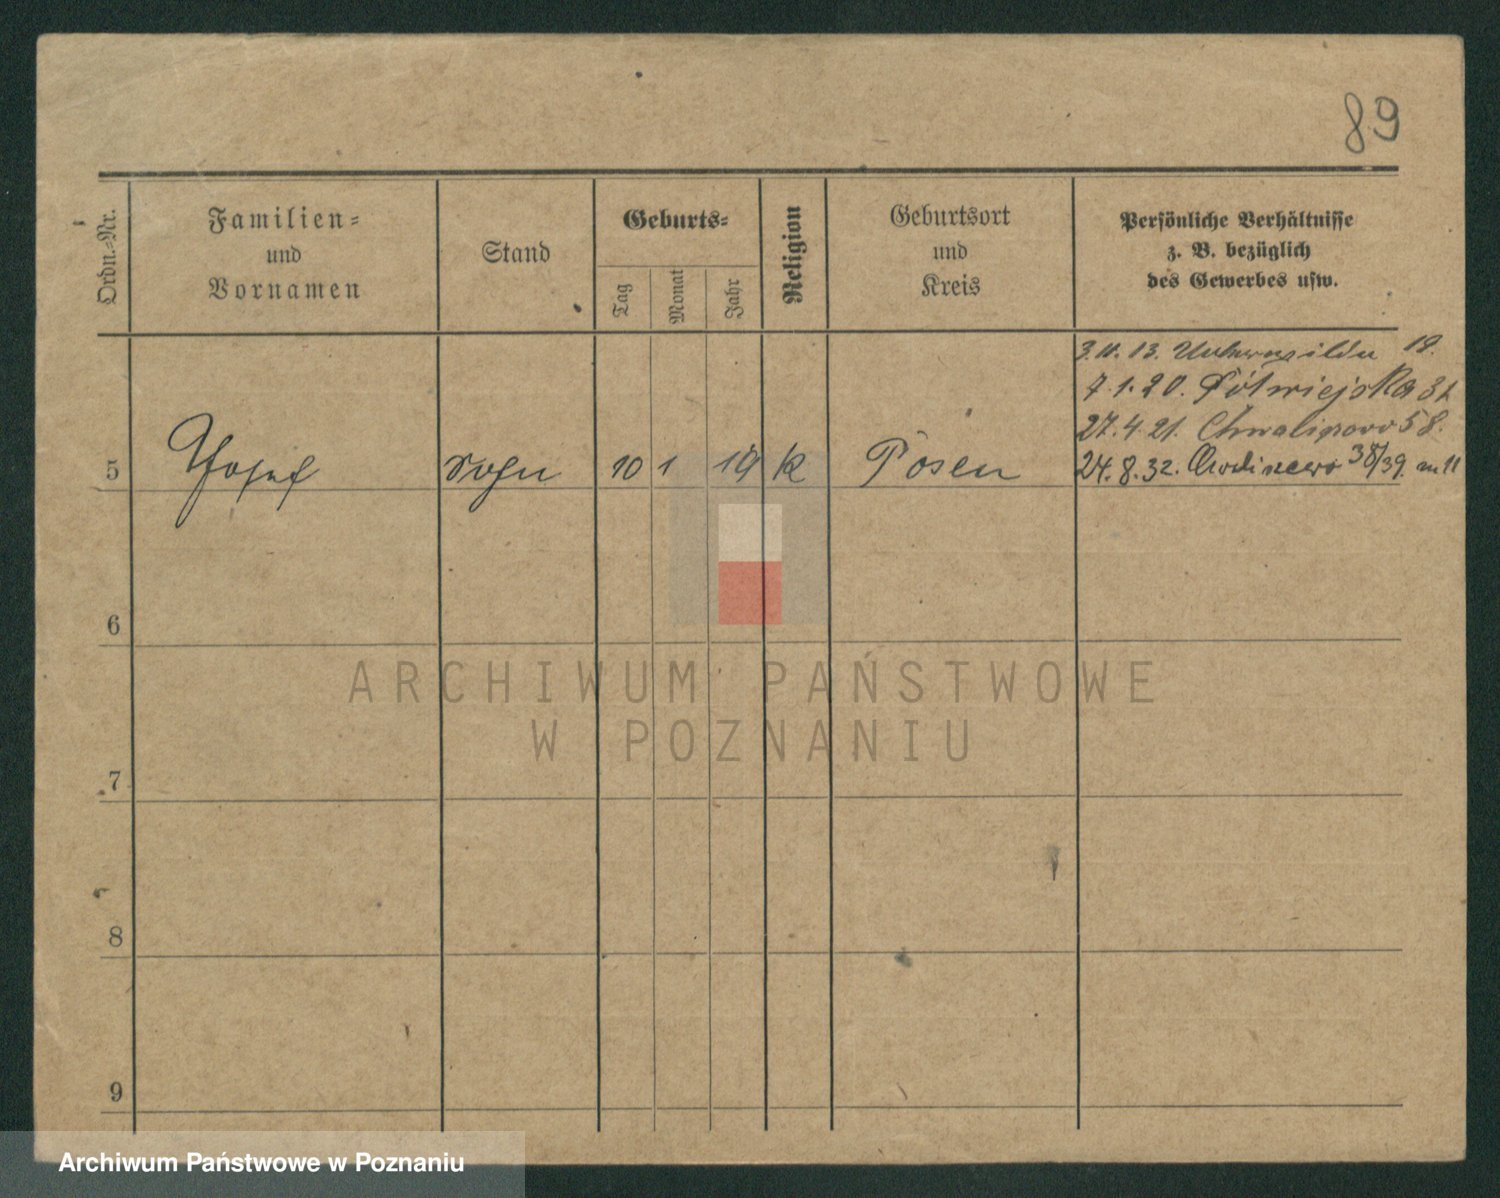 89
Ordn.-Nr.
Familien-
und
Vornamen
Stand
Geburts-
Tag
Monat
Jahr
Religion
Geburtsort
und
Kreis
Persönliche Verhältnisse
z. B. bezüglich
des Gewerbes usw.
3. 11. 13. 18.
7. 1. 20. Półwiejska 31
27. 4. 21. Chwaliszewo 58.
24. 8. 32. 38/39. m 11
5 Josef Sohn 10 1 19 k Posen
6
7
8
9
ARCHIWUM PAŃSTWOWE
W POZNANIU
Archiwum Państwowe w Poznaniu